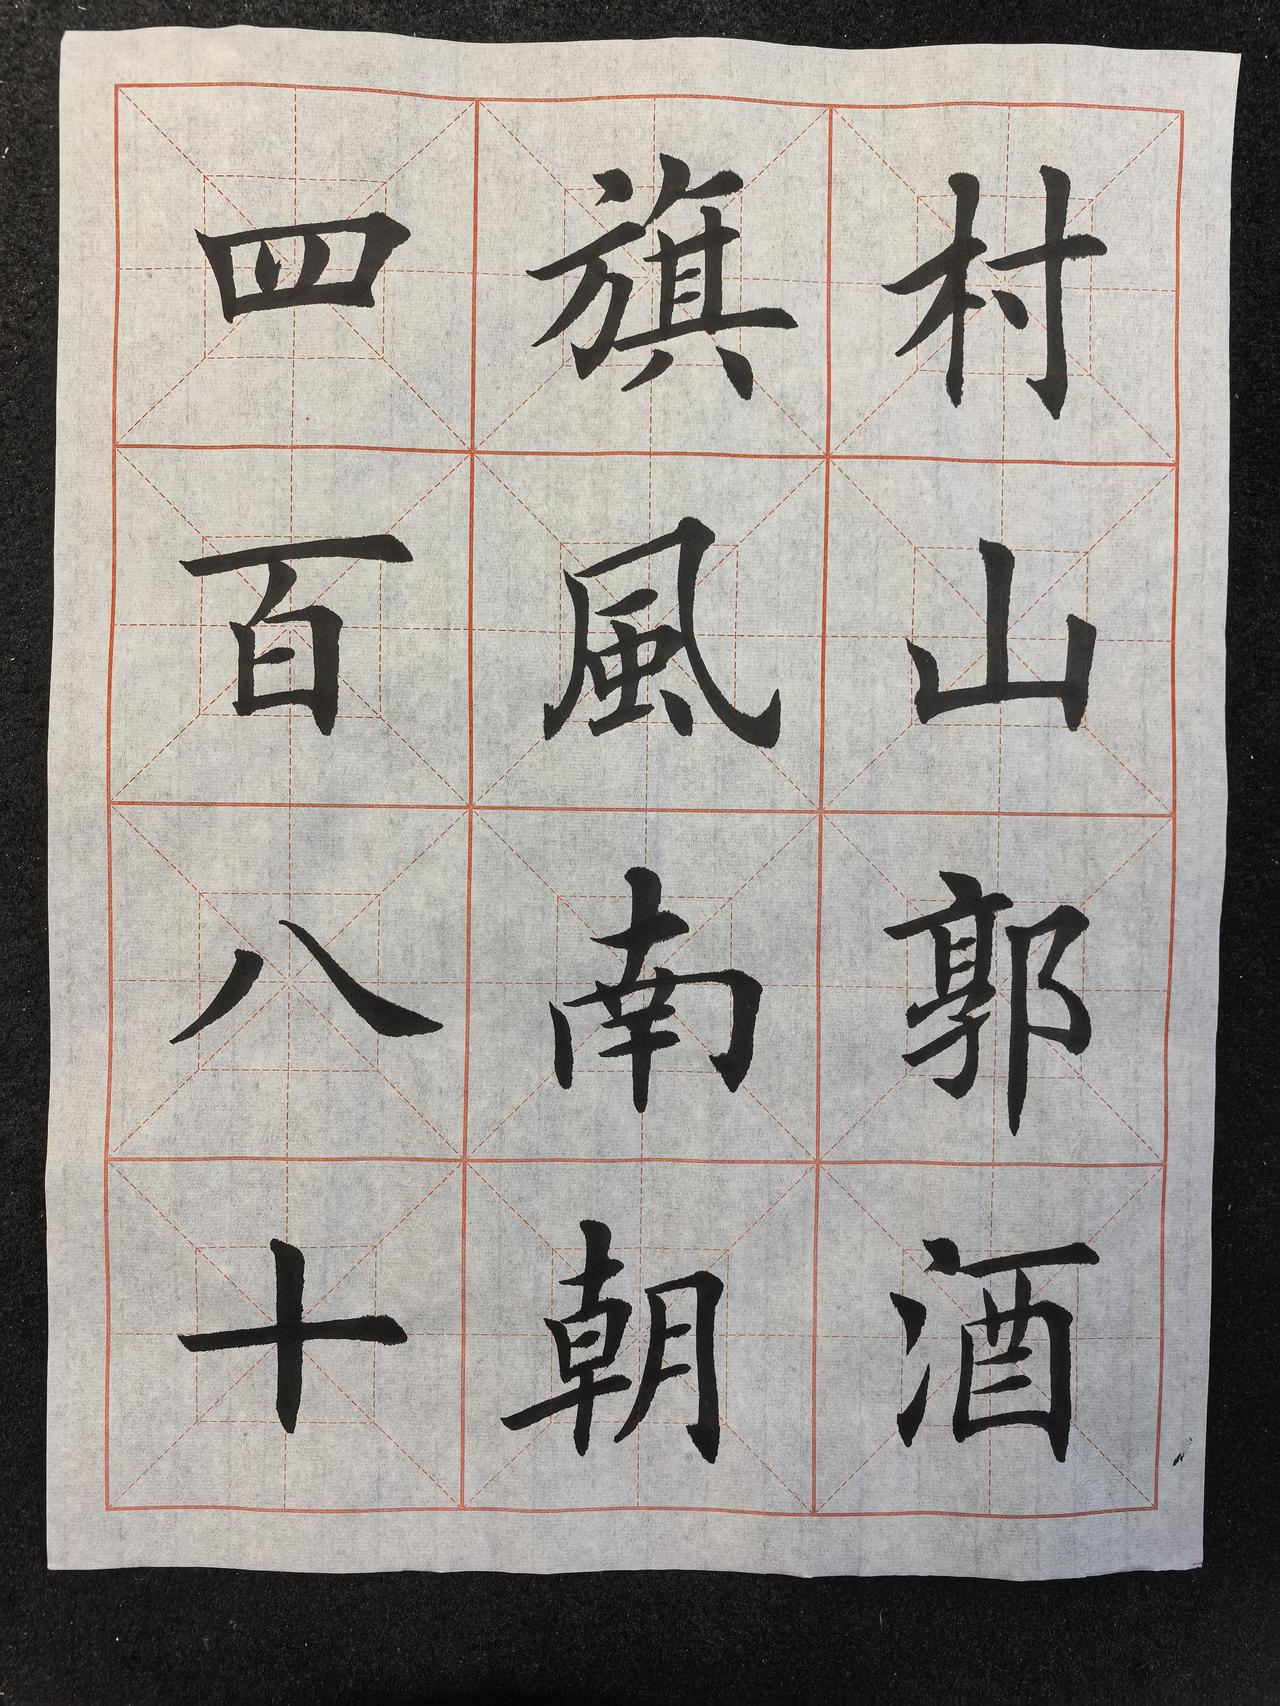 村山郭酒
旗風南朝
四百八十